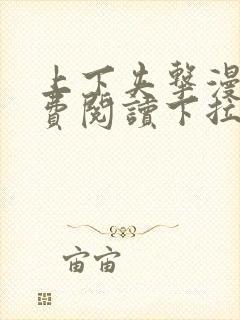 上下失擊漫
費閱讀下拉
宙宙